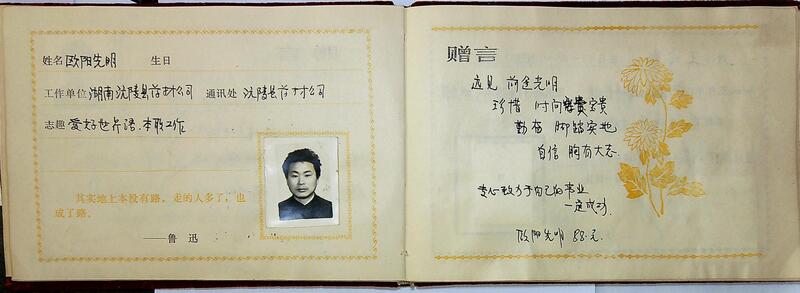 姓名 欧阳先明 生日
工作单位 湖南沅陵县药材公司 通讯处 沅陵县药材公司
志趣 爱好世界语、本职工作
其实地上本没有路，走的人多了，也
成了路。
——鲁迅
赠言
远见 前途光明
珍惜 时间宝贵
勤奋 脚踏实地
自信 胸有大志
专心致力于自己的事业
一定成功.
欧阳先明 88.元.